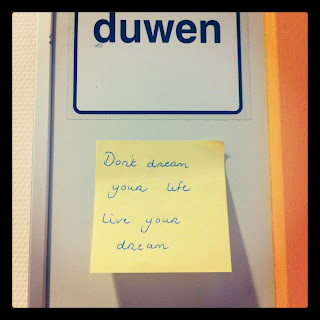 duwen
Don't dream
your life
Live your
dream